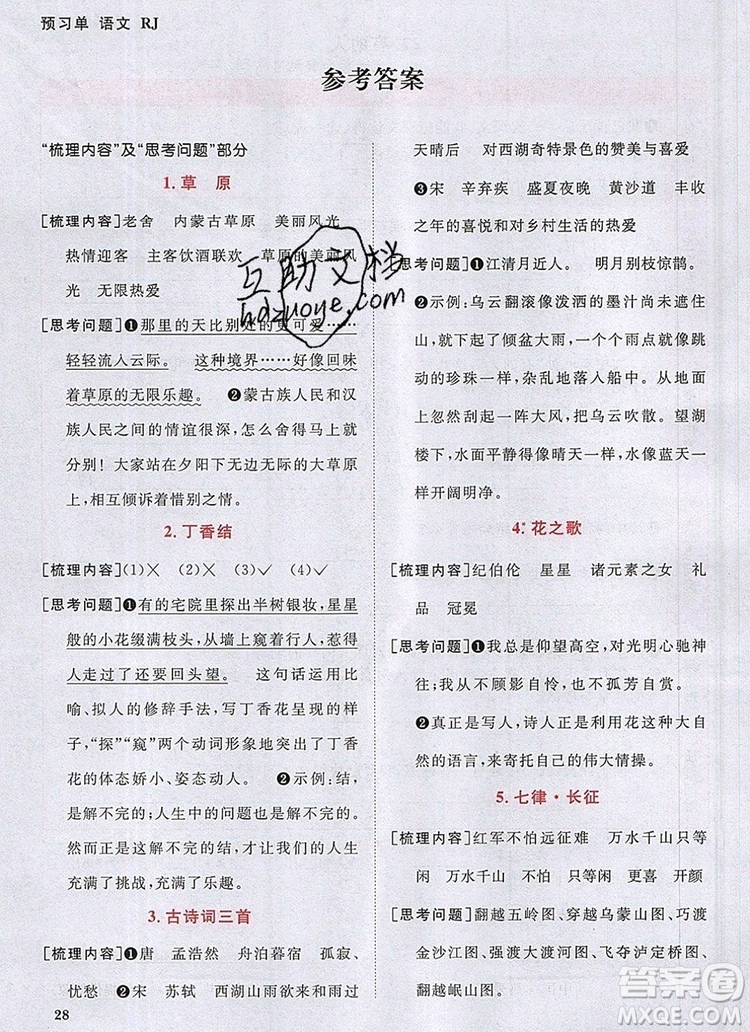 预习单 语文 RJ
参考答案
“梳理内容”及“思考问题”部分
1.草 原
[梳理内容]老舍 内蒙古草原 美丽风光
热情迎客 主客饮酒联欢 草原的美丽风
光 无限热爱
[思考问题]❶那里的天比别处的更可爱……
轻轻流入云际。 这种境界……好像回味
着草原的无限乐趣。 ❷蒙古族人民和汉
族人民之间的情谊很深,怎么舍得马上就
分别!大家站在夕阳下无边无际的大草原
上,互相倾诉着惜别之情。
2.丁香结
[梳理内容](1)✕ (2)✕ (3)✓ (4)✓
[思考问题]❶有的宅院里探出半树银妆,星星
般的小花缀满枝头,从墙上窥着行人,惹得
人走过了还要回头望。 这句话运用比
喻、拟人的修辞手法,写丁香花呈现多样的
特点,“探”“窥”两个动词形象地写出丁香
花的体态娇小、姿态动人。 ❷示例:结,
是解不完的;人生中的问题也是解不完的,
不然,岂不太平淡无味了吗?人生正因为
充满了挑战,才充满了乐趣。
3.古诗词三首
[梳理内容]❶唐 孟浩然 舟泊暮宿 孤寂、
忧愁 ❷宋 苏轼 西湖山雨欲来和雨过
28
天晴后 对西湖奇特景色的赞美与喜爱
❸宋 辛弃疾 盛夏夜晚 黄沙道 丰收
之年的喜悦和对乡村生活的热爱
[思考问题]❶江清月近人。 明月别枝惊鹊。
❷示例:乌云翻滚像泼洒的墨汁尚未遮住
山峦,大雨便下了起来,水花飞溅似白色灵
动的珍珠一样,杂乱地落入船中。从地面
上忽然卷起一阵大风,把乌云吹散。望湖
楼下,水面平静得像晴天一样,蓝天一碧,
开阔明净。
4.花之歌
[梳理内容]纪伯伦 星星 诸元素之女 礼
品 冠冕
[思考问题]❶我总是仰望高空,对光明心驰神
往;我从不顾影自怜,也不孤芳自赏。
❷真正是写人,诗人正是利用花这种大自然
的语言,来寄托自己的伟大情操。
5.七律·长征
[梳理内容]红军不怕远征难 万水千山只等
闲 不怕 难 万水千山 只等闲 开颜
[思考问题]翻越五岭图、穿越乌蒙山图、巧渡
金沙江图、强渡大渡河图、飞夺泸定桥图、
翻越岷山图。
互助文档
hdzuoye.com
答案圈
MXQE.COM